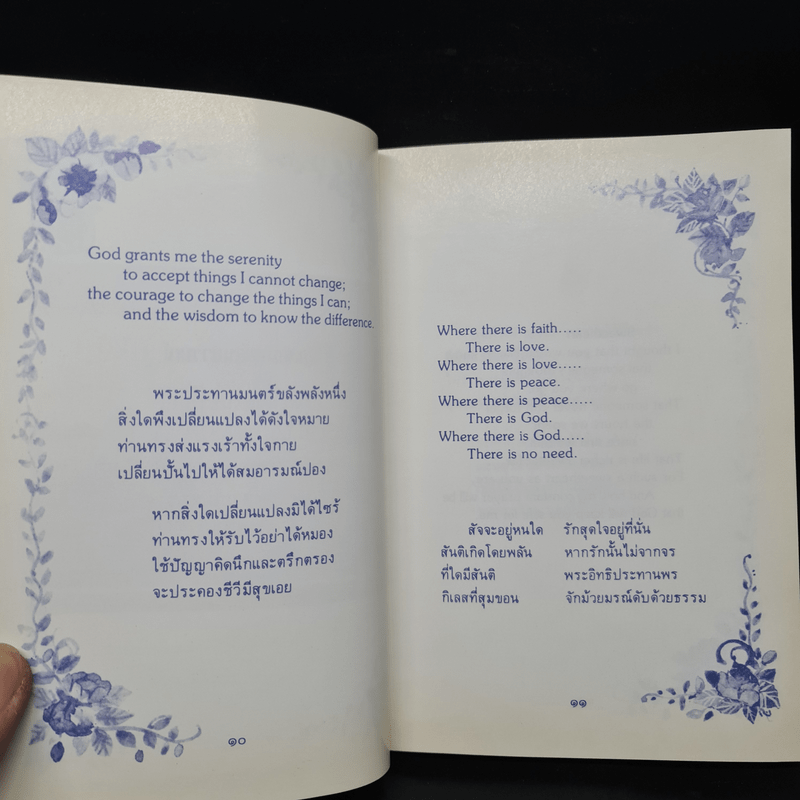 God grants me the serenity
to accept things I cannot change;
the courage to change the things I can;
and the wisdom to know the difference.
พระประทานมนตร์ขลังพลังหนึ่ง
สิ่งใดพึงเปลี่ยนแปลงได้ดังใจหมาย
ท่านทรงส่งแรงเร้าทั้งใจกาย
เปลี่ยนปั้นไปให้ได้สมอารมณ์ปอง
หากสิ่งใดเปลี่ยนแปลงมิได้ไซร้
ท่านทรงให้รับไว้อย่าได้หมอง
ใช้ปัญญาคิดนึกและตรึกตรอง
จะประคองชีวีมีสุขเอย
๑๐
Where there is faith.....
There is love.
Where there is love.....
There is peace.
Where there is peace.....
There is God.
Where there is God.....
There is no need.
สัจจะอยู่หนใด รักสุดใจอยู่ที่นั่น
สันติเกิดโดยพลัน หากรักนั้นไม่จากจร
ที่ใดมีสันติ พระอิทธิประทานพร
กิเลสที่สุมขอน จักม้วยมรณ์ดับด้วยธรรม
๑๑